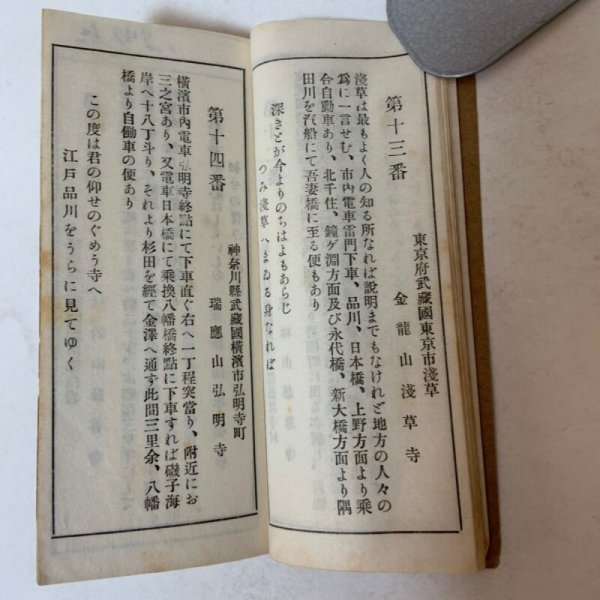 第十三番
東京府武藏國東京市淺草
金龍山淺草寺
淺草は最もよく人の知る所なれば說明までもなけれど地方の人々の
爲に一言せむ、市內電車雷門下車、品川、日本橋、上野方面より乘
合自動車あり、北千住、鐘ヶ淵方面及び永代橋、新大橋方面より隅
田川を汽船にて吾妻橋に至る便もあり
深きとが今よりのちはよもあらじ
つみ淺草へまゐる身なれば
第十四番
神奈川縣武藏國橫濱市弘明寺町
瑞應山弘明寺
橫濱市內電車弘明寺終點にて下車直ぐ右へ一丁程突當り、附近にお
三之宮あり、又電車日本橋にて乘換八幡橋終點に下車すれば磯子海
岸へ十八丁斗り、それより杉田を經て金澤へ通ず此間三里余、八幡
橋より自働車の便あり
この度は君の仰せのぐめう寺へ
江戶品川をうらに見てゆく